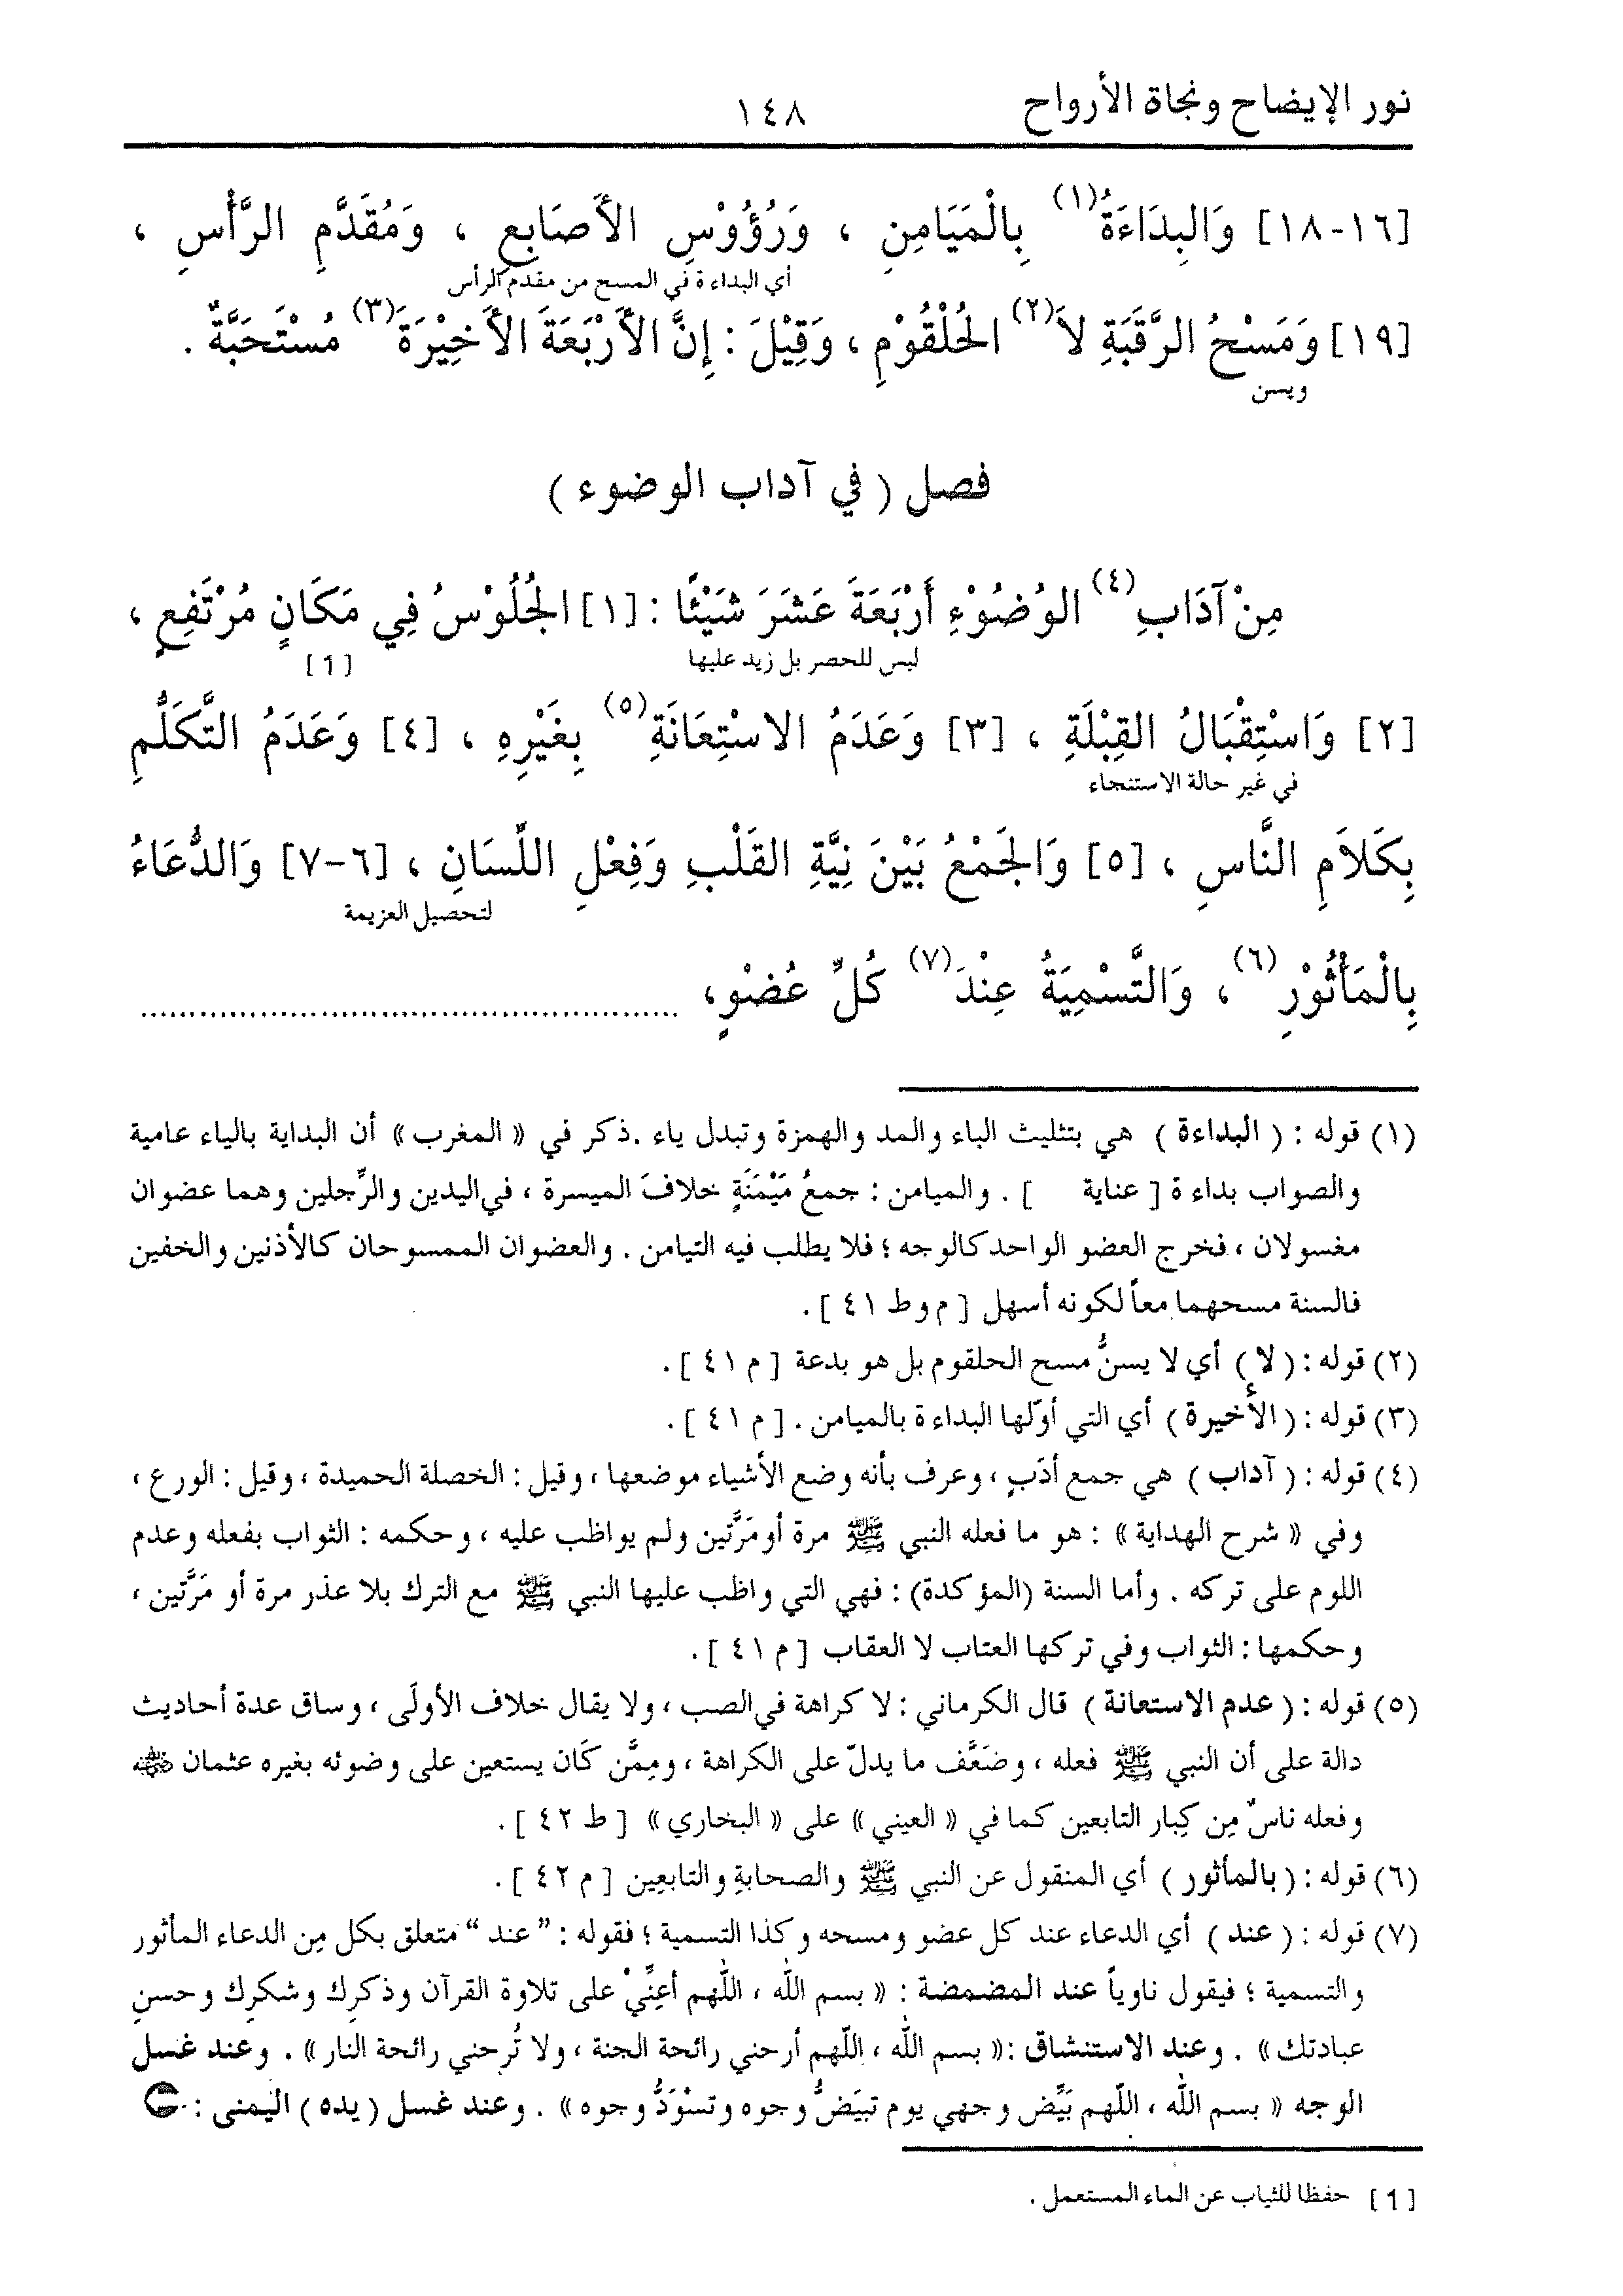 نور الإيضاح ونجاة الأرواح ١٤٨
[١٦-١٨] وَالبِدَاءَةُ(١) بِالْمَيَامِنِ ، وَرُؤُوْسِ الأَصَابِعِ ، وَمُقَدَّمِ الرَّأْسِ ،
أي البداءة في المسح من مقدم الرأس
[١٩] وَمَسْحُ الرَّقَبَةِ لاَ(٢) الحُلْقُوْمِ ، وَقِيْلَ : إِنَّ الأَرْبَعَةَ الأَخِيْرَةَ(٣) مُسْتَحَبَّةٌ .
ويسن
فصل ( في آداب الوضوء )
مِنْ آدَابِ(٤) الوُضُوْءِ أَرْبَعَةَ عَشَرَ شَيْئًا : [١] الجُلُوْسُ فِي مَكَانٍ مُرْتَفِعٍ ،
ليس للحصر بل زيد عليها [1]
[٢] وَاسْتِقْبَالُ القِبْلَةِ ، [٣] وَعَدَمُ الاسْتِعَانَةِ(٥) بِغَيْرِهِ ، [٤] وَعَدَمُ التَّكَلُّمِ
في غير حالة الاستنجاء
بِكَلاَمِ النَّاسِ ، [٥] وَالجَمْعُ بَيْنَ نِيَّةِ القَلْبِ وَفِعْلِ اللِّسَانِ ، [٦-٧] وَالدُّعَاءُ
لتحصيل العزيمة
بِالْمَأْثُوْرِ(٦)، وَالتَّسْمِيَةُ عِنْدَ(٧) كُلِّ عُضْوٍ، ..................................................
(١) قوله : ( البداءة ) هي بتثليث الباء والمد والهمزة وتبدل ياء .ذكر في « المغرب» أن البداية بالياء عامية
والصواب بداءة [ عناية ] . والميامن : جمعُ مَيْمَنَةٍ خلافَ الميسرة ، في اليدين والرِّجلين وهما عضوان
مغسولان ، فخرج العضو الواحد كالوجه ؛ فلا يطلب فيه التيامن . والعضوان الممسوحان كالأذنين والخفين
فالسنة مسحهما معاً لكونه أسهل [ م وط ٤١ ].
(٢) قوله : ( لا ) أي لا يسنُّ مسح الحلقوم بل هو بدعة [ م ٤١ ].
(٣) قوله : ( الأخيرة ) أي التي أوّلها البداءة بالميامن . [ م ٤١ ].
(٤) قوله : ( آداب ) هي جمع أدَبٍ ، وعرف بأنه وضع الأشياء موضعها ، وقيل : الخصلة الحميدة ، وقيل : الورع ،
وفي « شرح الهداية» : هو ما فعله النبي ﷺ مرة أو مَرَّتين ولم يواظب عليه ، وحكمه : الثواب بفعله وعدم
اللوم على تركه . وأما السنة (المؤكدة) : فهي التي واظب عليها النبي ﷺ مع الترك بلا عذر مرة أو مَرَّتين ،
وحكمها : الثواب وفي تركها العتاب لا العقاب [ م ٤١ ].
(٥) قوله : ( عدم الاستعانة ) قال الكرماني : لا كراهة في الصب ، ولا يقال خلاف الأولَى ، وساق عدة أحاديث
دالة على أن النبي ﷺ فعله ، وضَعَّف ما يدلّ على الكراهة ، ومِمَّن كَان يستعين على وضوئه بغيره عثمان رضي الله عنه
وفعله ناسٌ مِن كِبار التابعين كما في « العيني» على « البخاري» [ ط ٤٢ ].
(٦) قوله : ( بالمأثور ) أي المنقول عن النبي ﷺ والصحابةِ والتابعِين [ م ٤٢ ].
(٧) قوله : ( عند ) أي الدعاء عند كل عضو ومسحه وكذا التسمية ؛ فقوله : ”عند“ متعلق بكل مِن الدعاء المأثور
والتسمية ؛ فيقول ناوياً عند المضمضة : « بسم الله ، اللّهم أعِنِّيْ على تلاوة القرآن وذكرِك وشكرِك وحسنِ
عبادتك» . وعند الاستنشاق :« بسم الله ، اللّهم أرحني رائحة الجنة ، ولا تُرِحني رائحة النار» . وعند غسل
الوجه « بسم الله ، اللّهم بَيِّض وجهي يوم تبيَضُّ وجوه وتسْوَدُّ وجوه» . وعند غسل ( يده ) اليمنى :
[1] حفظا للثياب عن الماء المستعمل .